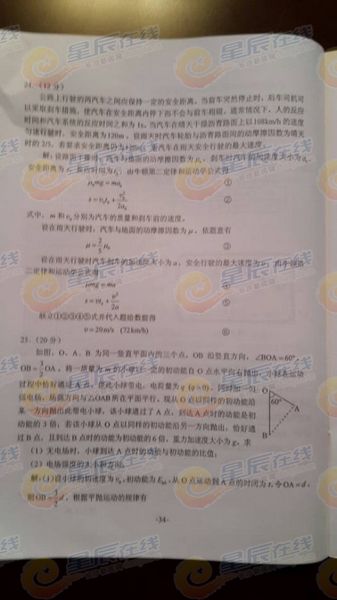 24.（12分）
公路上行驶的两汽车之间应保持一定的安全距离。当前车突然停止时，后车司机可
以采取刹车措施，使汽车在安全距离内停下而不会与前车相碰。通常情况下，人的反应
时间和汽车系统的反应时间之和为1s。当汽车在晴天干燥沥青路面上以108km/h的速度
匀速行驶时，安全距离为120m。设雨天时汽车轮胎与沥青路面间的动摩擦因数为晴天
时的2/5，若要求安全距离仍为120m，求汽车在雨天安全行驶的最大速度。
解：设路面干燥时，汽车与地面的动摩擦因数为μ₀，刹车时汽车的加速度大小为a₀，
安全距离为s，反应时间为t₀，由牛顿第二定律和运动学公式得
μ₀mg=ma₀ ①
s=v₀t₀+v₀²/2a₀ ②
式中，m和v₀分别为汽车的质量和刹车前的速度。
设在雨天行驶时，汽车与地面的动摩擦因数为μ，依题意有
μ=2/5 μ₀ ③
设在雨天行驶时汽车刹车的加速度大小为a，安全行驶的最大速度为v，由牛顿第
二定律和运动学公式得
μmg=ma ④
s=vt₀+v²/2a ⑤
联立①②③④⑤式并代入题给数据得
v=20m/s (72km/h) ⑥
25.（20分）
如图，O、A、B为同一竖直平面内的三个点，OB沿竖直方向，∠BOA=60°，
OB=3/2 OA，将一质量为m的小球以一定的初动能自O点水平向右抛出，小球在运动
过程中恰好通过A点。使此小球带电，电荷量为q（q>0），同时加一匀
强电场，场强方向与△OAB所在平面平行。现从O点以同样的初动能沿
某一方向抛出此带电小球，该小球通过了A点，到达A点时的动能是初
动能的3倍；若该小球从O点以同样的初动能沿另一方向抛出，恰好通
过B点，且到达B点时的动能为初动能的6倍，重力加速度大小为g。求
O
60°
A
B
（1）无电场时，小球到达A点时的动能与初动能的比值；
（2）电场强度的大小和方向。
解：（1）设小球的初速度为v₀，初动能为Eₖ₀，从O点运动到A点的时间为t，令OA=d，
则OB=3/2 d，根据平抛运动的规律有
-34-
星辰在线